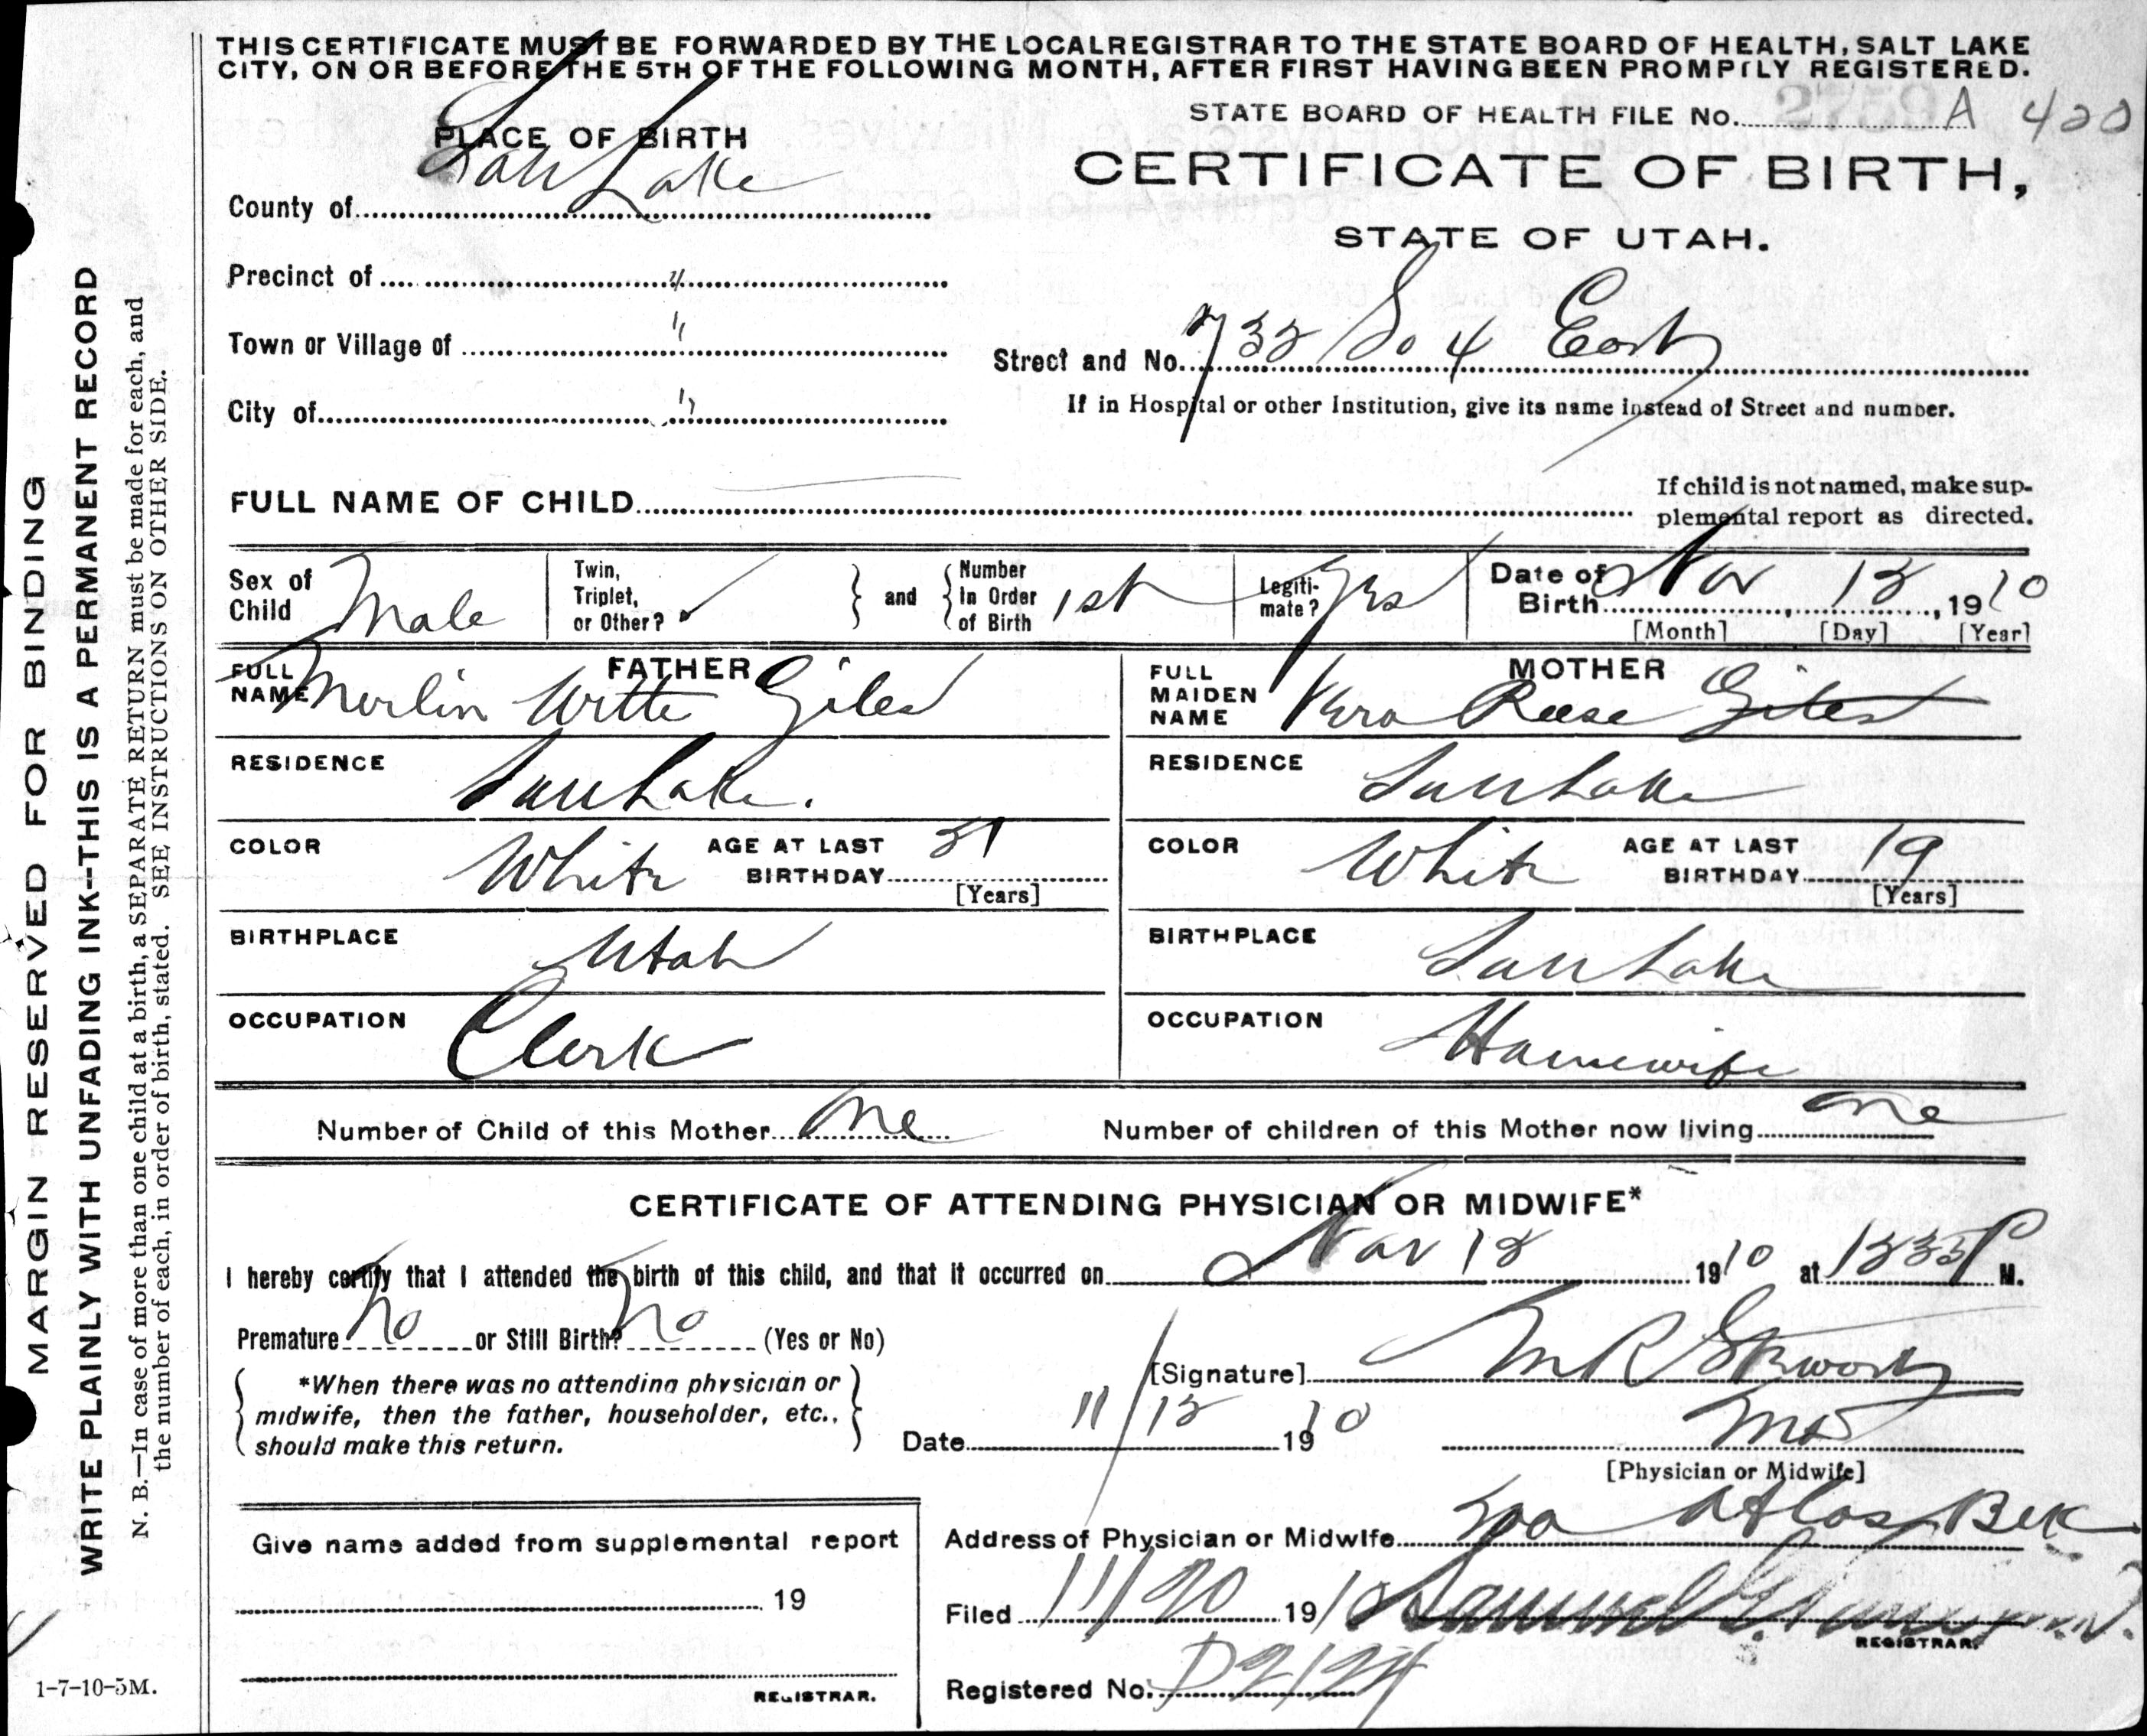 THIS CERTIFICATE MUST BE FORWARDED BY THE LOCAL REGISTRAR TO THE STATE BOARD OF HEALTH, SALT LAKE
CITY, ON OR BEFORE THE 5TH OF THE FOLLOWING MONTH, AFTER FIRST HAVING BEEN PROMPTLY REGISTERED.
STATE BOARD OF HEALTH FILE No. A 420
PLACE OF BIRTH
CERTIFICATE OF BIRTH,
STATE OF UTAH.
County of Salt Lake
Precinct of "
Town or Village of "
Street and No. 732 So 4 East
City of "
If in Hospital or other Institution, give its name instead of Street and number.
FULL NAME OF CHILD
If child is not named, make sup-
plemental report as directed.
Sex of Child Male
Twin, Triplet, or Other?
and
Number In Order of Birth 1st
Legiti-mate? Yes
Date of Birth Nov 12, 1910
[Month] [Day] [Year]
FATHER
FULL NAME Merlin Giles
RESIDENCE Salt Lake.
COLOR White AGE AT LAST BIRTHDAY 21
[Years]
BIRTHPLACE Utah
OCCUPATION Clerk
MOTHER
FULL MAIDEN NAME Vera Reese Giles
RESIDENCE Salt Lake
COLOR White AGE AT LAST BIRTHDAY 19
[Years]
BIRTHPLACE Salt Lake
OCCUPATION Housewife
Number of Child of this Mother One
Number of children of this Mother now living One
CERTIFICATE OF ATTENDING PHYSICIAN OR MIDWIFE*
I hereby certify that I attended the birth of this child, and that it occurred on Nov 12 1910 at 1235 P M.
Premature No or Still Birth? No (Yes or No)
*When there was no attending physician or
midwife, then the father, householder, etc.,
should make this return.
[Signature] M R Stewart
Date 11/12 1910
MD
[Physician or Midwife]
Address of Physician or Midwife Atlas Blk
Filed 11/20 1910 Samuel
REGISTRAR.
Registered No. D2124
Give name added from supplemental report
19
REGISTRAR.
MARGIN RESERVED FOR BINDING
WRITE PLAINLY WITH UNFADING INK--THIS IS A PERMANENT RECORD
N. B.—In case of more than one child at a birth, a SEPARATE RETURN must be made for each, and
the number of each, in order of birth, stated. SEE INSTRUCTIONS ON OTHER SIDE.
1-7-10-5M.